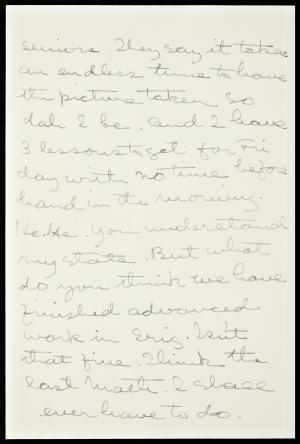 seniors. They say it takes
an endless time to have
the picture taken. So
dah 2 be. and I have
3 lessons to get for Fri
day with no time before
hand in the morning.
He. He. You understand
my state. But what
do you think we have
finished advanced
work in Trig. Isn't
that fine. Think the
last Math. I shall
ever have to do.